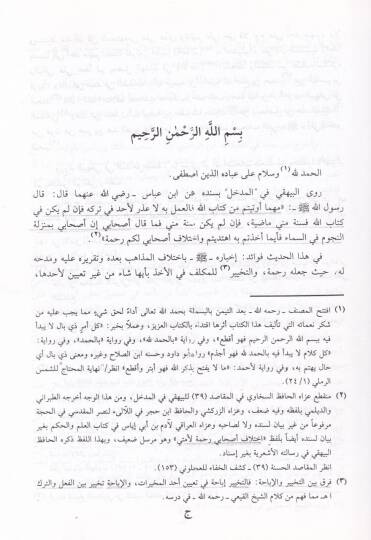 بِسْمِ اللَّهِ الرَّحْمٰنِ الرَّحِيمِ
الحمد لله(١) وسلام على عباده الذين اصطفى.
روى البيهقي في "المدخل" بسنده عن ابن عباس ـ رضي الله عنهما قال: قال
رسول الله ﷺ ـ: «مهما أوتيتم من كتاب الله فالعمل به لا عذر لأحد في تركه فإن لم يكن في
كتاب الله فسنة مني ماضية، فإن لم يكن سنة مني فما قال أصحابي إن أصحابي بمنزلة
النجوم في السماء فأيما أخذتم به اهتديتم واختلاف أصحابي لكم رحمة»(٢).
في هذا الحديث فوائد: إخباره ـ ﷺ ـ باختلاف المذاهب بعده وتقريره عليه ومدحه
له، حيث جعله رحمة، والتخيير(٣) للمكلف في الأخذ بأيها شاء من غير تعيين لأحدها،
(١) افتتح المصنف ـ رحمه الله ـ بعد التيمن بالبسملة بحمد الله تعالى أداءً لحق شيءٍ مما يجب عليه من
شكر نعمائه التي تأليف هذا الكتاب أثرها اقتداءً بالكتاب العزيز، وعملاً بخبر: «كل أمر ذي بال لا يبدأ
فيه ببسم الله الرحمن الرحيم فهو أقطع»، وفي رواية «بالحمد لله»، وفي رواية «بالحمد»، وفي رواية:
«كل كلام لا يبدأ فيه بالحمد لله فهو أجذم» رواه أبو داود وحسنه ابن الصلاح وغيره ومعنى ذي بال أي
حال يهتم به، وفي رواية لأحمد: «ما لا يفتح بذكر الله فهو أبتر وأقطع» انظر/ نهاية المحتاج للشمس
الرملي (١/ ٢٤).
(٢) منقطع عزاه الحافظ السخاوي في المقاصد (٣٩) للبيهقي في المدخل، ومن هذا الوجه أخرجه الطبراني
والديلمي بلفظه وفيه ضعف، وعزاه الزركشي والحافظ ابن حجر في اللآلىء لنصر المقدسي في الحجة
مرفوعاً من غير بيان لسنده ولا لصاحبه وعزاه العراقي لآدم بن أبي إياس في كتاب العلم والحكم بغير
بيان لسنده أيضاً بلفظ «اختلاف أصحابي رحمة لأمتي» وهو مرسل ضعيف، وبهذا اللفظ ذكره الحافظ
البيهقي في رسالته الأشعرية بغير إسناد.
انظر المقاصد الحسنة (٣٩) ـ كشف الخفاء للعجلوني (١٥٣).
(٣) فرق بين التخيير والإباحة: فالتخيير إباحة في تعيين أحد المخيرات، والإباحة تخيير بين الفعل والترك
ا هـ مما فهم من كلام الشيخ القيعي ـ رحمه الله ـ في درسه.
ج